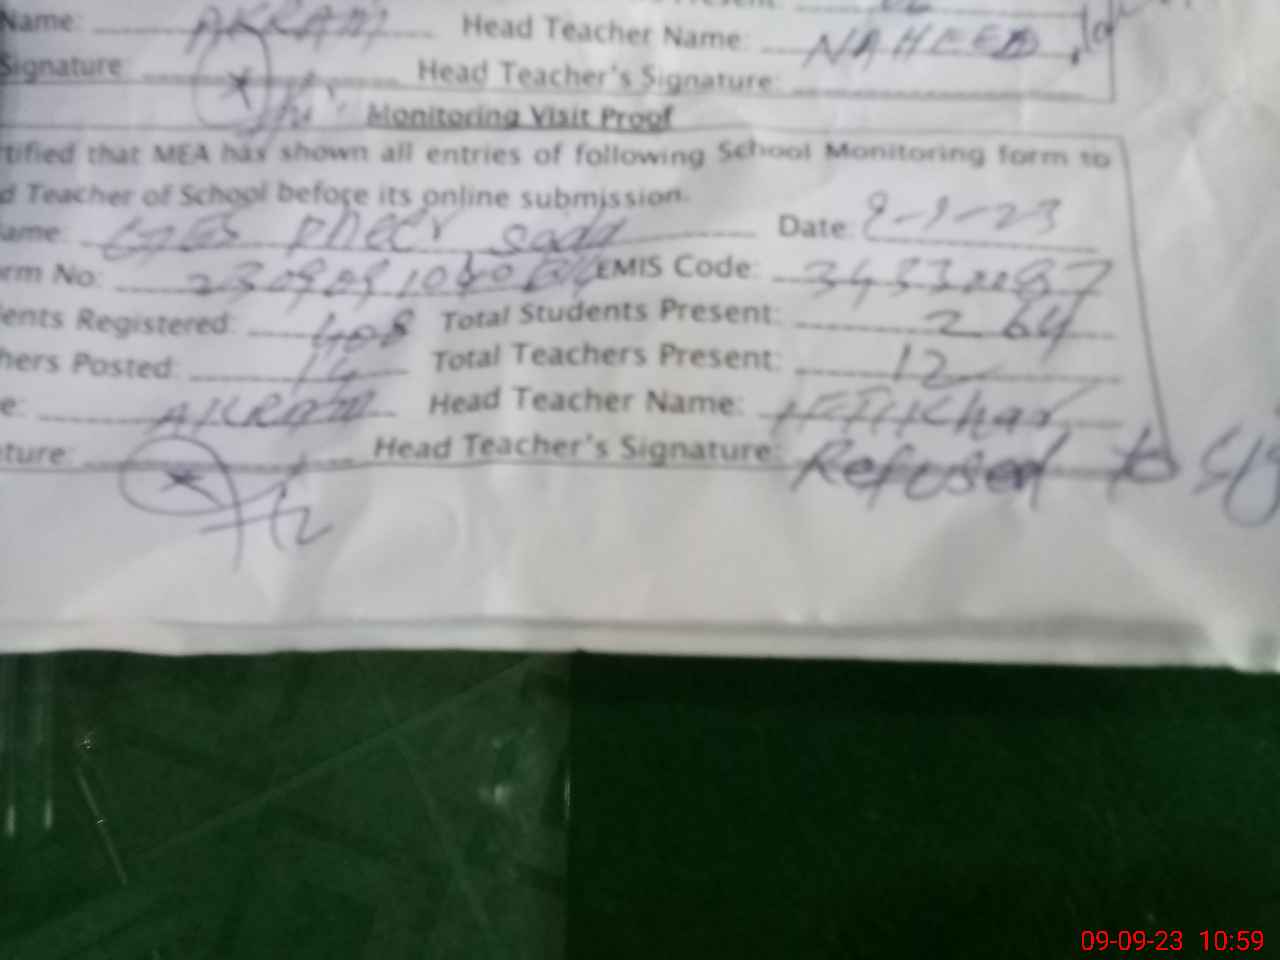 Name: AKRAM Head Teacher Name: NAHEED
Signature: Head Teacher's Signature:
Monitoring Visit Proof
tified that MEA has shown all entries of following School Monitoring form to
d Teacher of School before its online submission.
ame: Date: 9-9-23
rm No: EMIS Code:
ents Registered: 408 Total Students Present: 264
hers Posted: 14 Total Teachers Present: 12
e: AKRAM Head Teacher Name: IFTIKhar
ture: Head Teacher's Signature: Refused to
09-09-23 10:59